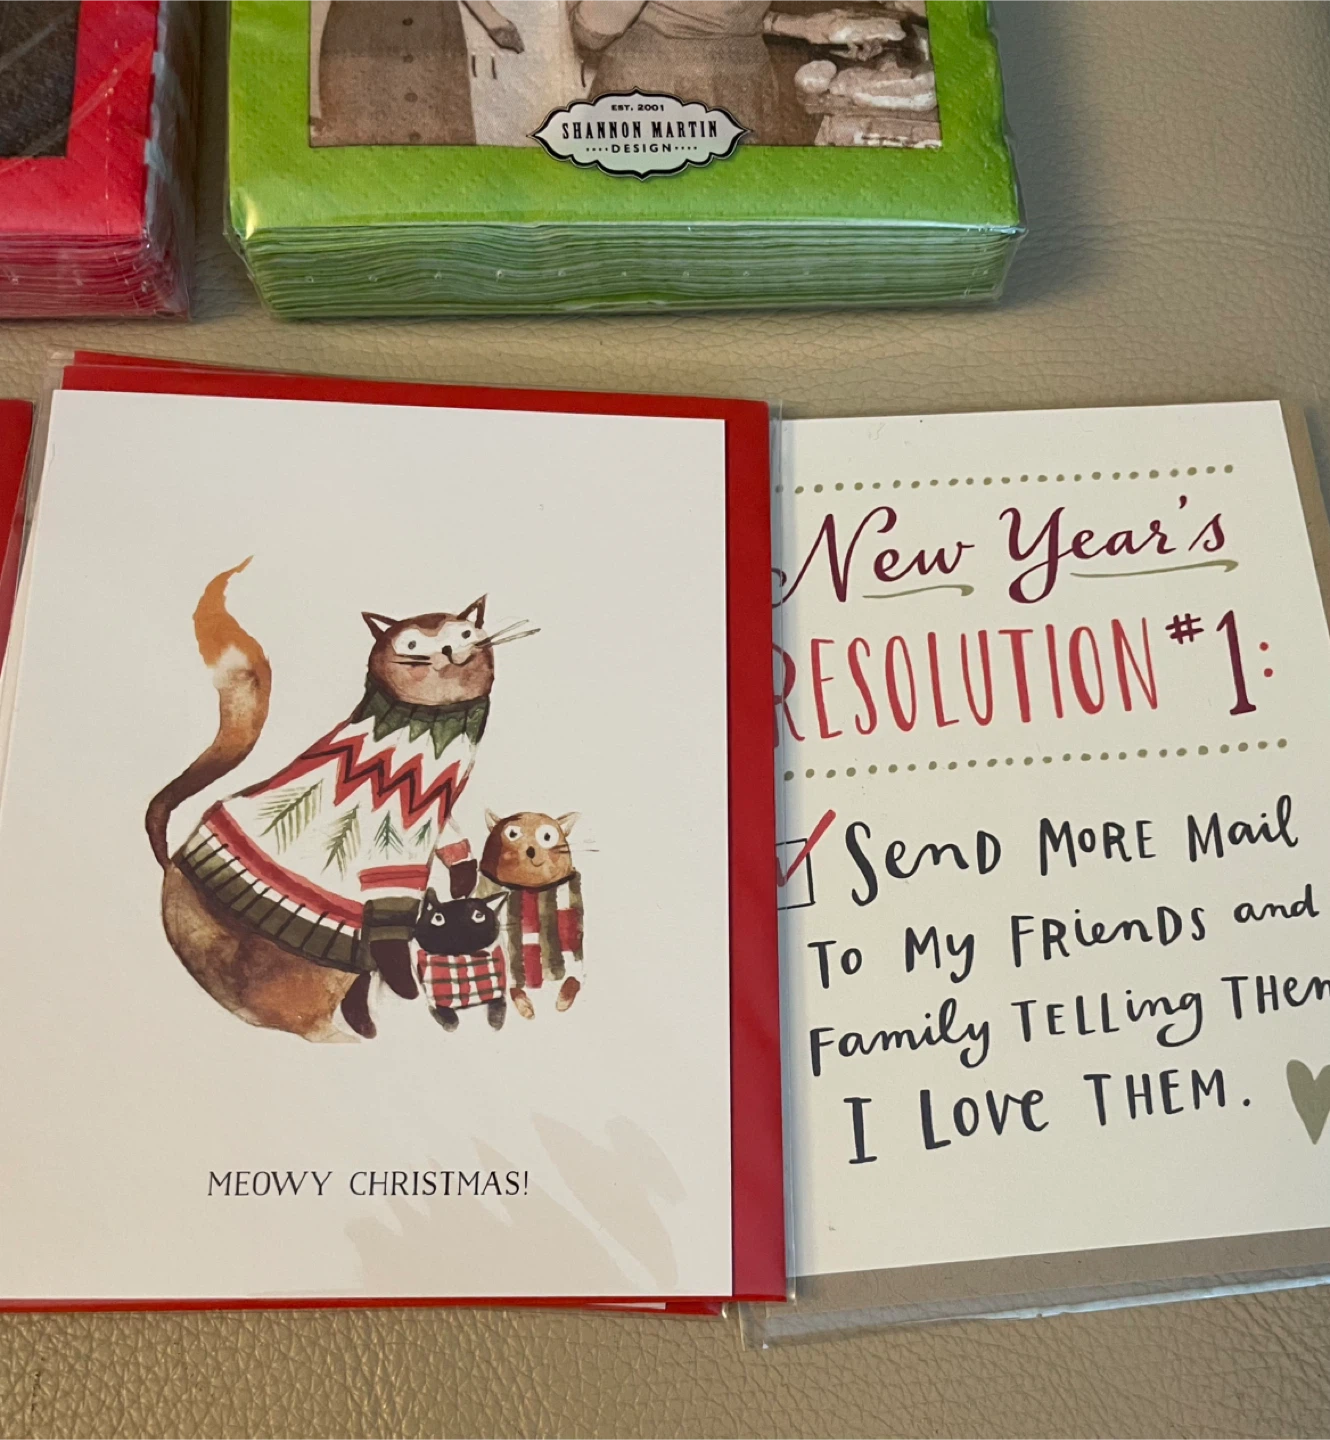 EST. 2001
SHANNON MARTIN
DESIGN
MEOWY CHRISTMAS!
New Year's
RESOLUTION #1:
Send MORE Mail
To My FRiENDS and
Family TELLing THem
I Love THEM.